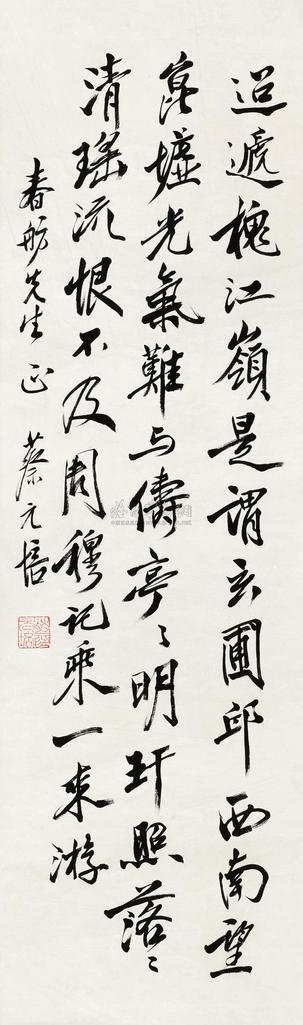 迢遞槐江嶺是謂玄圃邱西南望
崑墟光氣難与儔亭〻明玕照落〻
清瑤流恨不及周穆託乘一来游
春舫先生正 蔡元培